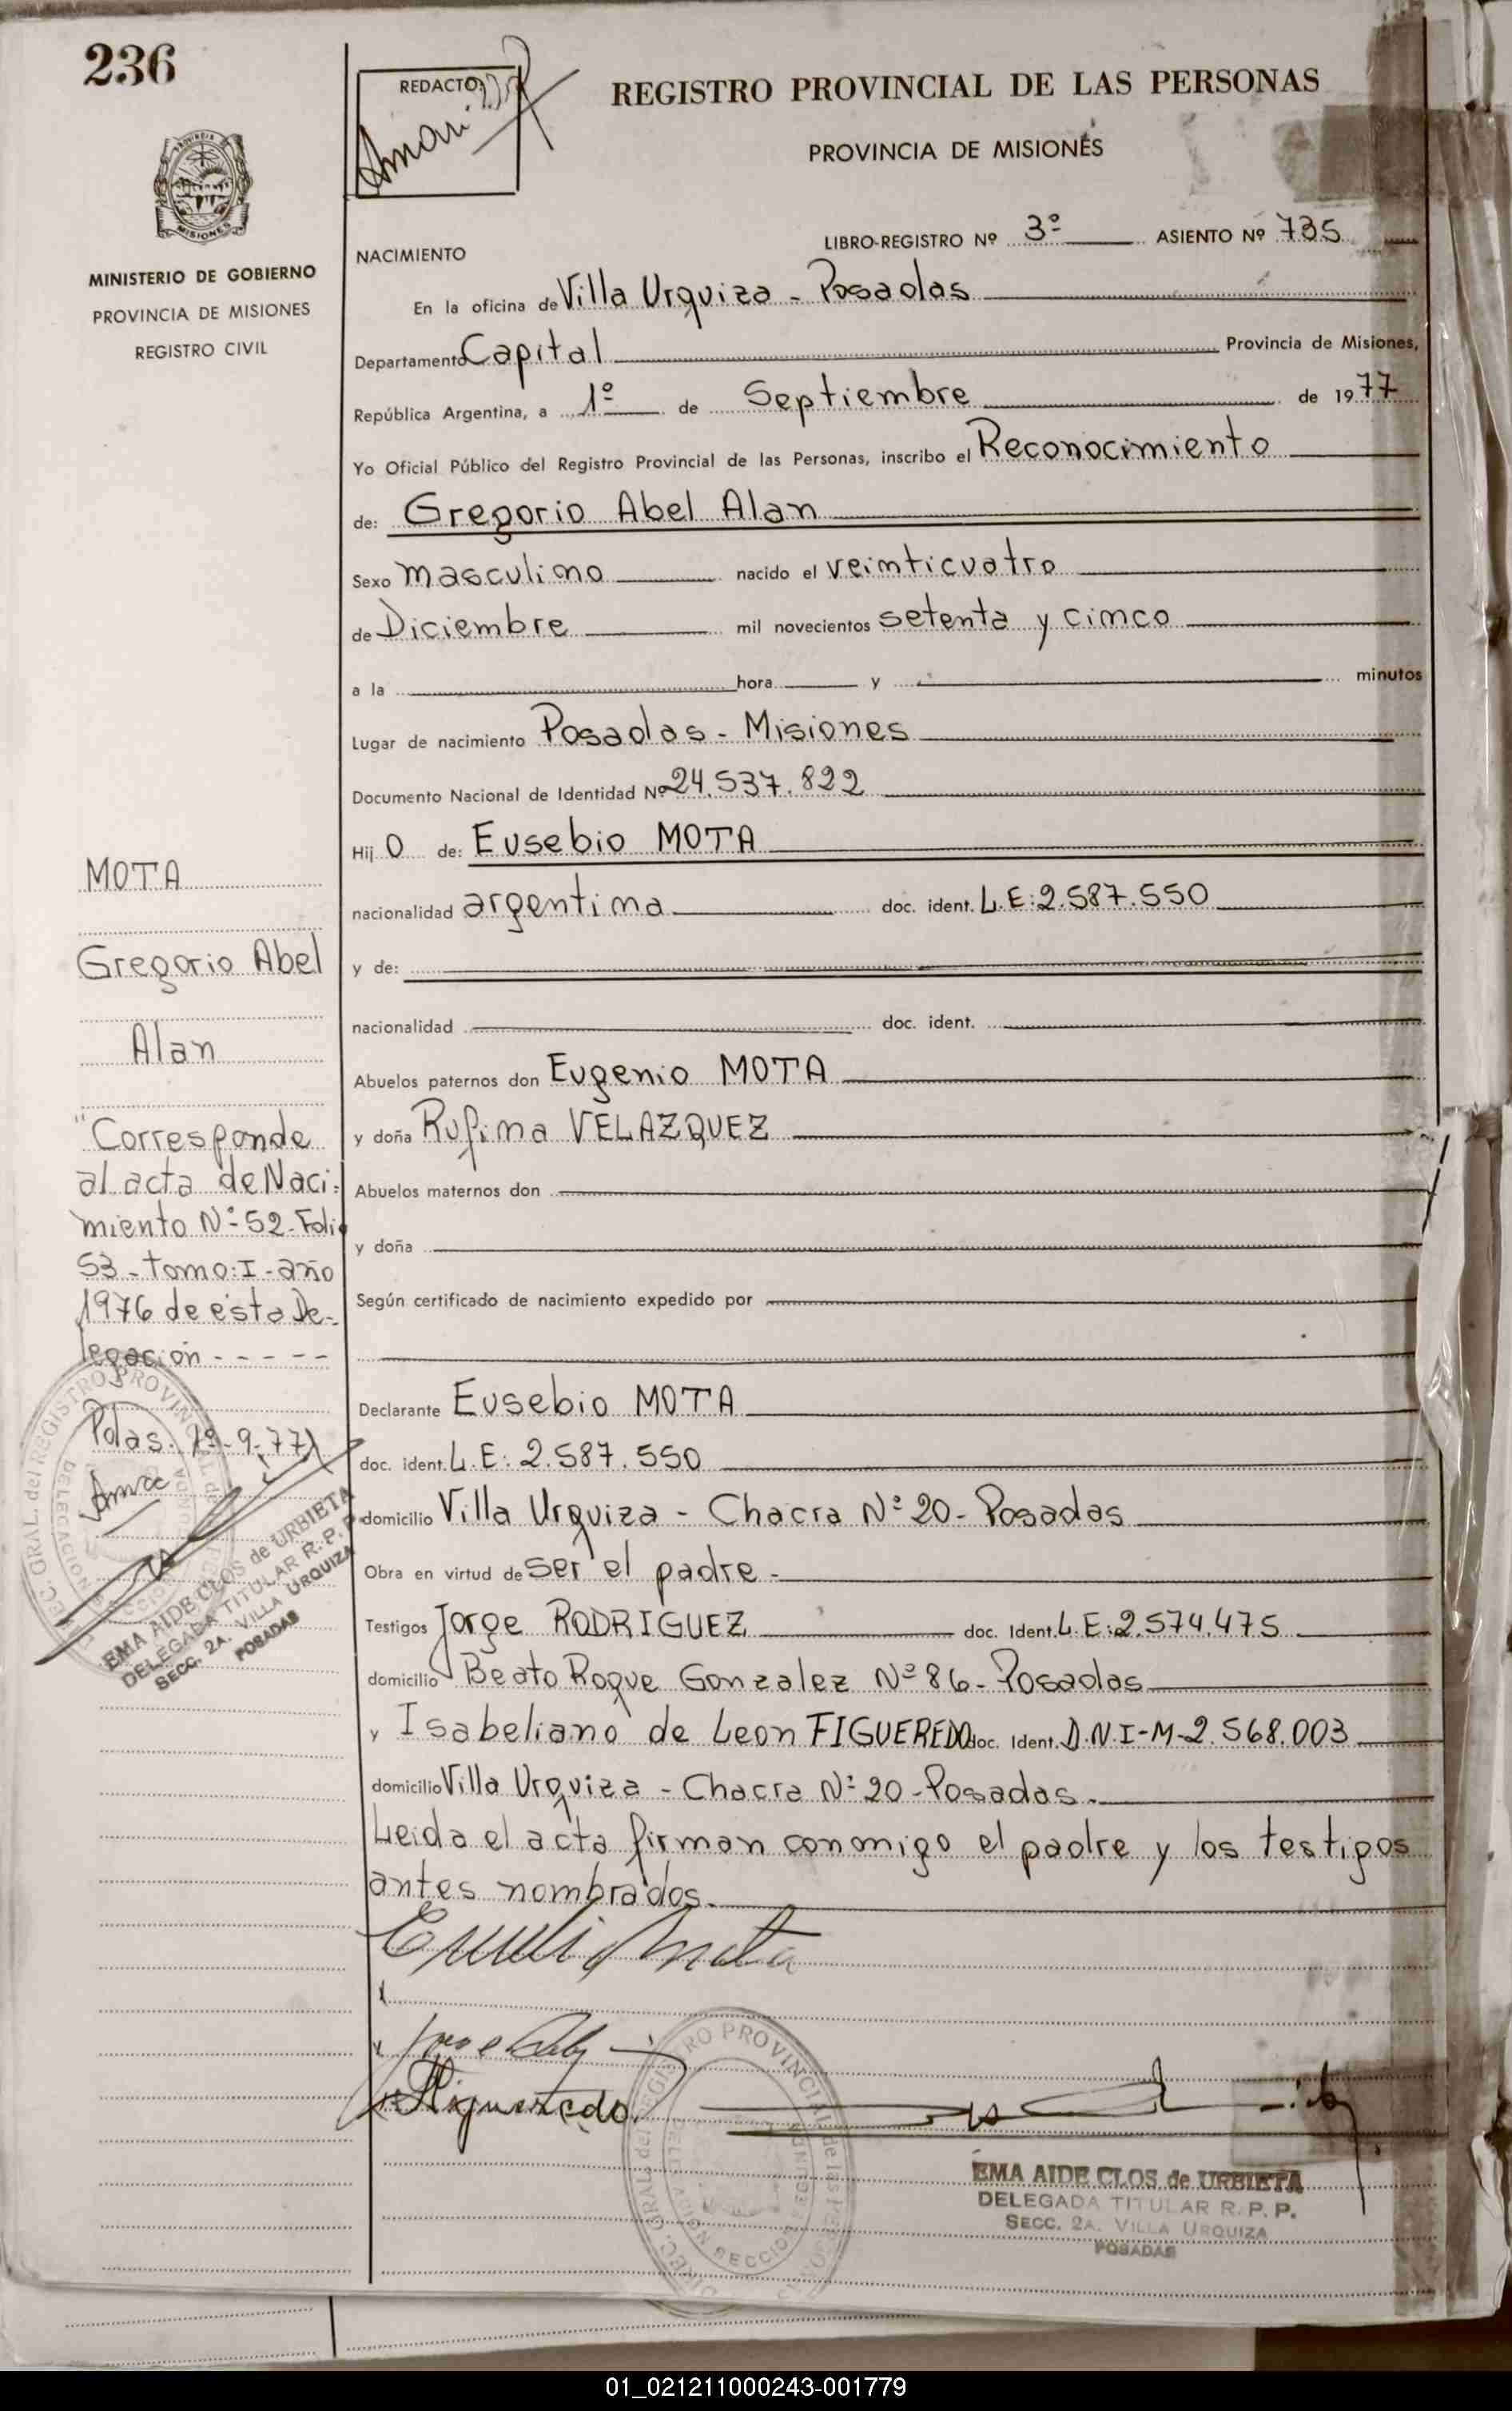 236
REDACTO
REGISTRO PROVINCIAL DE LAS PERSONAS
PROVINCIA DE MISIONES
MISIONES
MINISTERIO DE GOBIERNO
PROVINCIA DE MISIONES
REGISTRO CIVIL
NACIMIENTO
LIBRO-REGISTRO Nº 3º ASIENTO Nº 735
En la oficina de Villa Urquiza - Posadas
Departamento Capital Provincia de Misiones,
República Argentina, a 1º de Septiembre de 1977
Yo Oficial Público del Registro Provincial de las Personas, inscribo el Reconocimiento
de: Gregorio Abel Alan
Sexo masculino nacido el veinticuatro
de Diciembre mil novecientos setenta y cinco
a la hora y minutos
Lugar de nacimiento Posadas - Misiones
Documento Nacional de Identidad Nº 24.537.822
Hijo de: Eusebio MOTA
nacionalidad argentina doc. ident. L.E:2.587.550
y de:
nacionalidad doc. ident.
Abuelos paternos don Eugenio MOTA
y doña Rufina VELAZQUEZ
Abuelos maternos don
y doña
Según certificado de nacimiento expedido por
Declarante Eusebio MOTA
doc. ident. L.E: 2.587.550
domicilio Villa Urquiza - Chacra Nº 20 - Posadas
Obra en virtud de ser el padre -
Testigos Jorge RODRIGUEZ doc. Ident. L.E:2.574.475
domicilio Beato Roque Gonzalez Nº 86 - Posadas
y Isabeliano de Leon FIGUEREDO doc. Ident. D.N.I-M-2.568.003
domicilio Villa Urquiza - Chacra Nº 20 - Posadas.
Leida el acta firman conmigo el padre y los testigos
antes nombrados.
MOTA
Gregorio Abel
Alan
"Corresponde
al acta de Naci-
miento Nº 52 - Folio
53 - tomo: I - año
1976 de ésta De-
legación - - - - -
Pdas. 1º-9-77
EMA AIDE CLOS de URBIETA
DELEGADA TITULAR R.P.P.
SECC. 2A. VILLA URQUIZA
POSADAS
EMA AIDE CLOS de URBIETA
DELEGADA TITULAR R. P. P.
SECC. 2A. VILLA URQUIZA
POSADAS
01_021211000243-001779